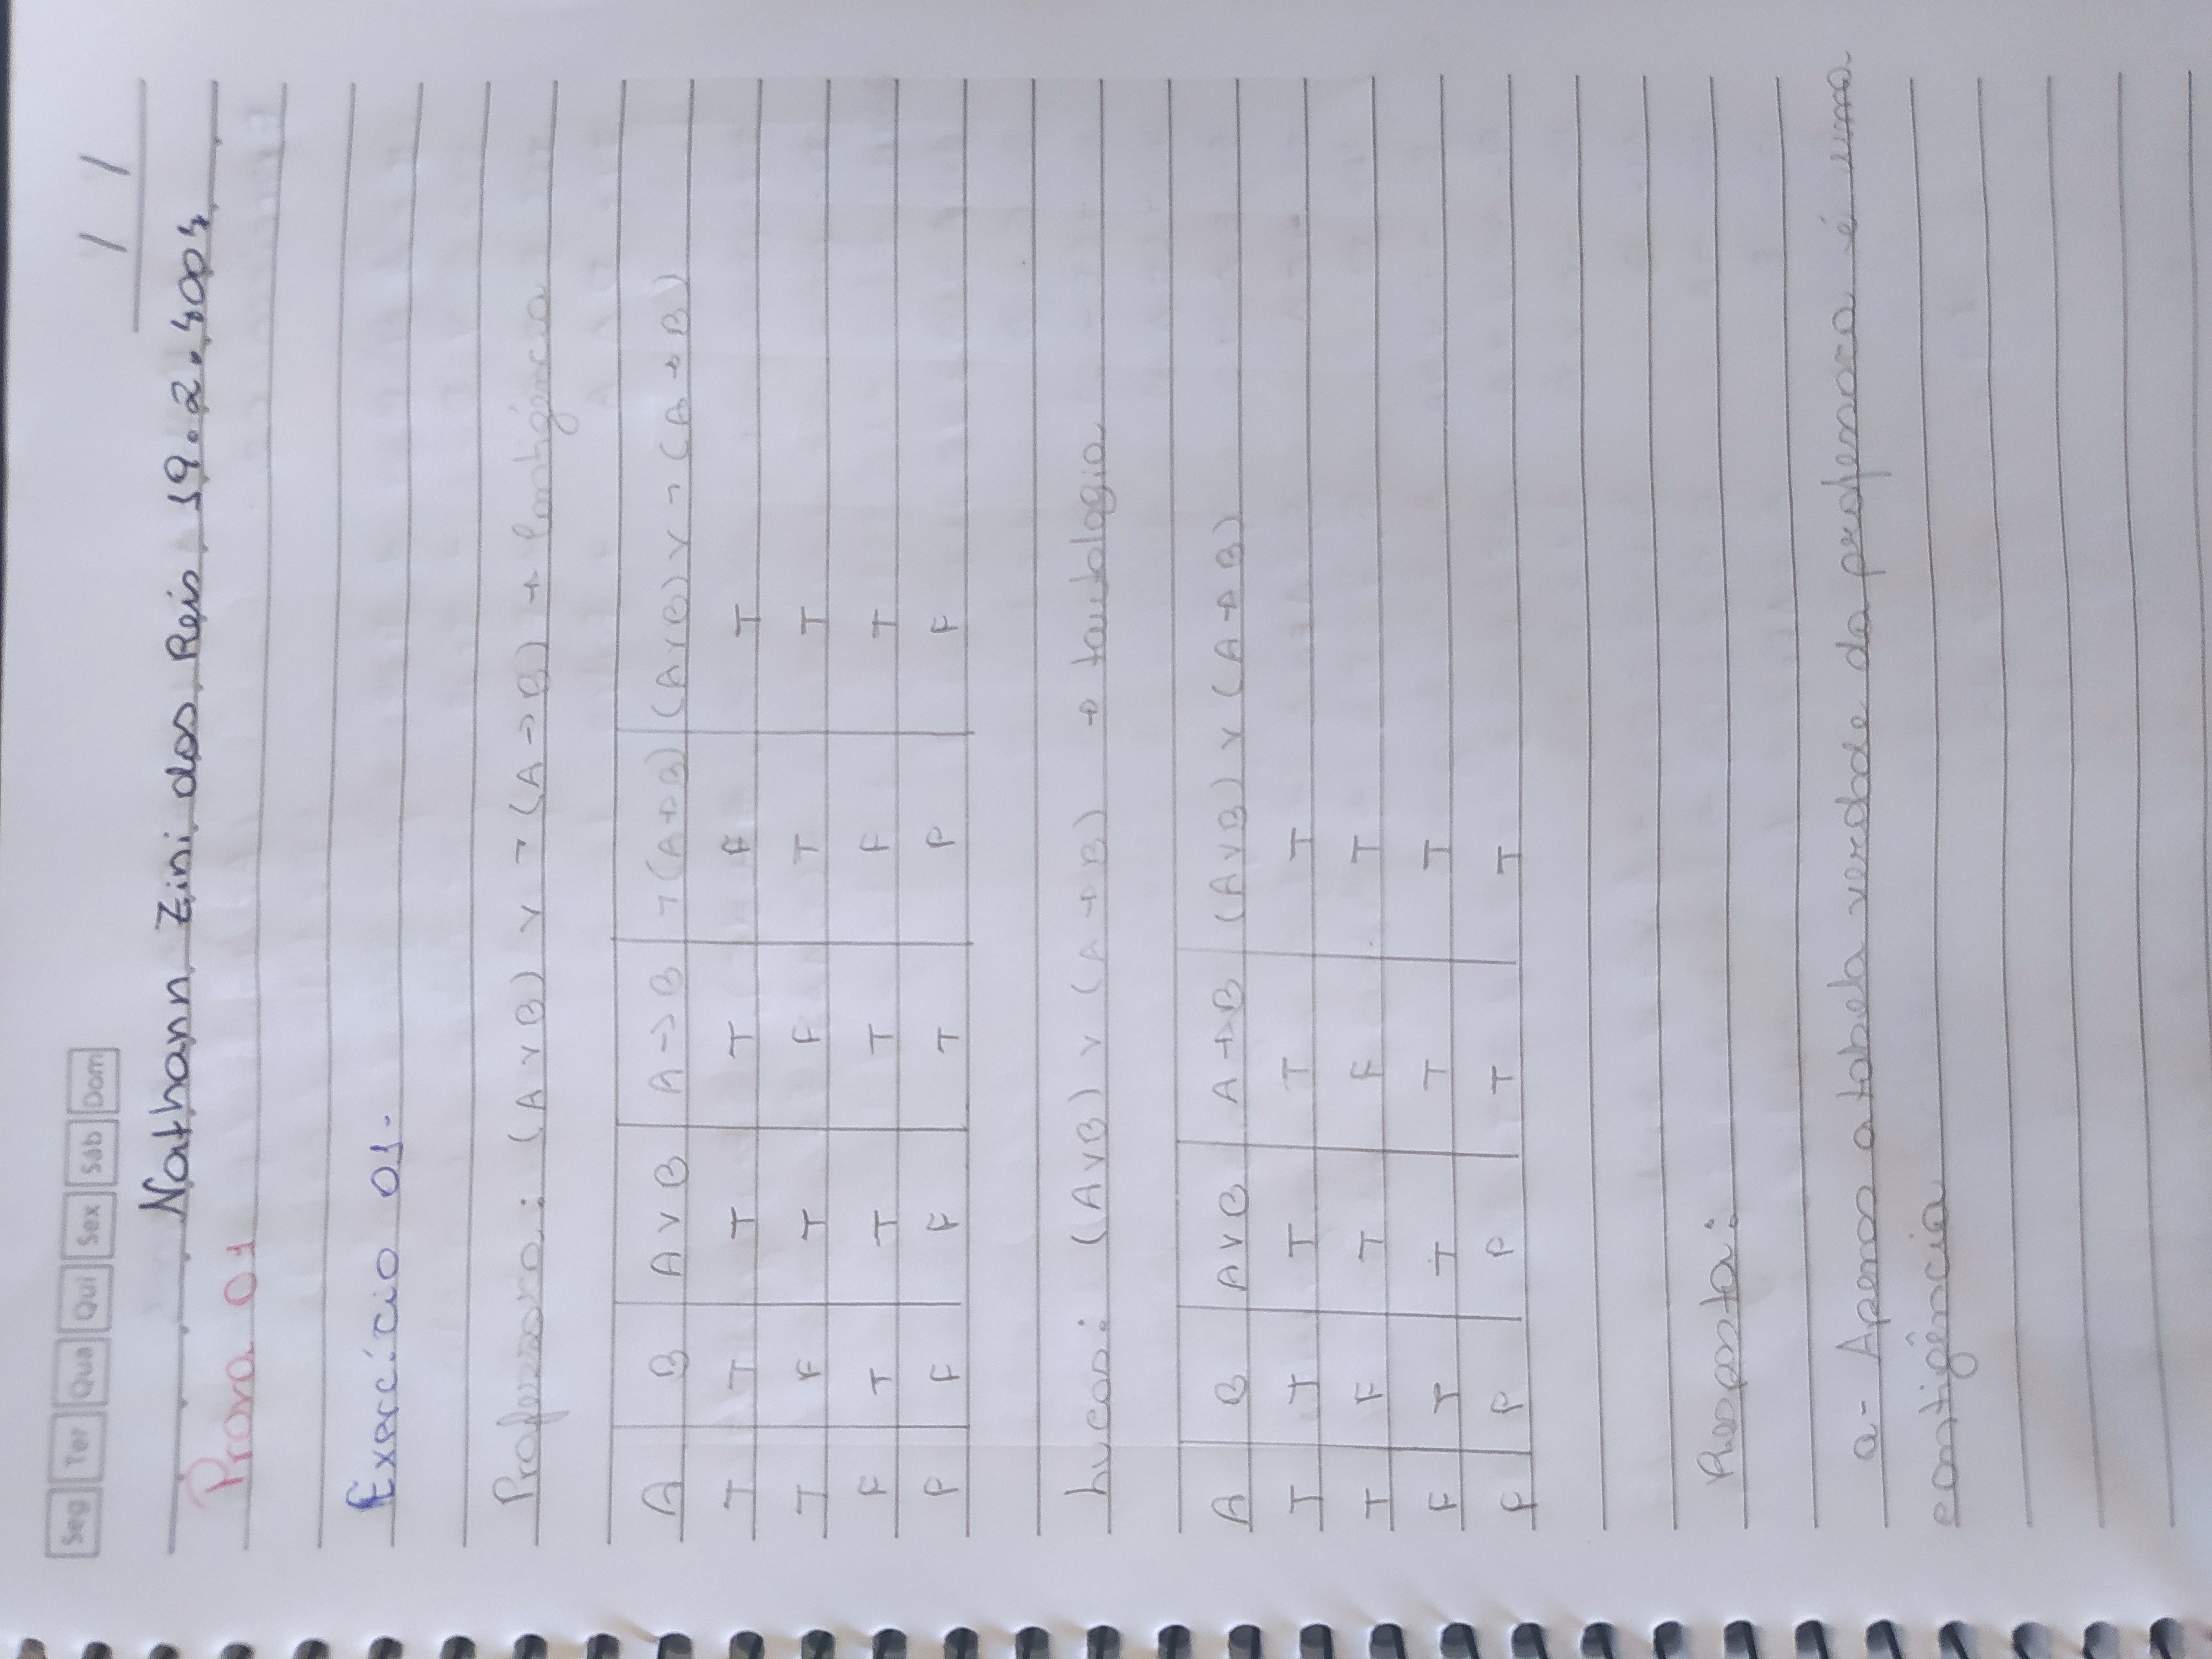 Seg Ter Qua Qui Sex Sáb Dom
/ /
Nathann Zini dos Reis 19.2.4004
Prova 01
Exercício 01.
Professora: (A v B) v ¬(A → B) → Contigência
A B A v B A → B ¬(A → B) (A v B) v ¬(A → B)
T T T T F T
T F T F T T
F T T T F T
F F F T F F
Lucas: (A v B) v (A → B) → tautologia
A B A v B A → B (A v B) v (A → B)
T T T T T
T F T F T
F T T T T
F F F T T
Resposta:
a- Apenas a tabela verdade da professora é uma
contigência